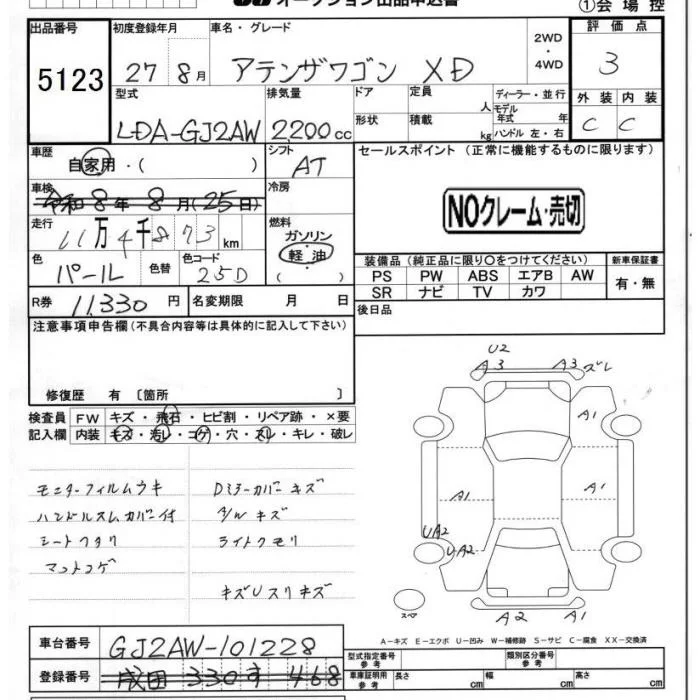 オークション出品申込書
①会場控
出品番号 初度登録年月 車名・グレード 2WD・4WD 評価点
5123 27 8月 アテンザワゴン XD 3
型式 排気量 ドア 定員 人 ディーラー・並行 外装 内装
LDA-GJ2AW 2200cc 形状 積載 kg モデル年式 年 ハンドル 左・右 C C
車歴 自家用・( ) シフト AT セールスポイント (正常に機能するものに限ります)
車検 令和8年8月(25日) 冷房
NOクレーム・売切
走行 11万4千873km 燃料 ガソリン 軽油 ( )
色 パール 色替 色コード 25D
装備品 (純正品に限り○をつけてください) 新車保証書
PS PW ABS エアB AW 有・無
SR ナビ TV カワ
R券 11,330円 名変期限 月 日 後日品
注意事項申告欄 (不具合内容等は具体的に記入して下さい)
修復歴 有 〔箇所 〕
検査員記入欄 FW キズ・飛石・ヒビ割・リペア跡・×要
内装 キズ・汚レ・コゲ・穴・スレ・キレ・破レ
モニターフィルムウキ Dミラーカバーキズ
ハンドルスレカバー付 A/Wキズ
シートワタリ ライトクモリ
マットコゲ
キズUスリキズ
U2
A3 A3 ズレ
A1
A1 A1
UA2
UA2
スペア
A2 A1
A-キズ E-エクボ U-凹み W-補修跡 S-サビ C-腐食 XX-交換済
車台番号 GJ2AW-101228
登録番号 成田 330 す 468
型式指定番号 参考 類別区分番号 参考
車庫証明用 参考 長さ cm 幅 cm 高さ cm